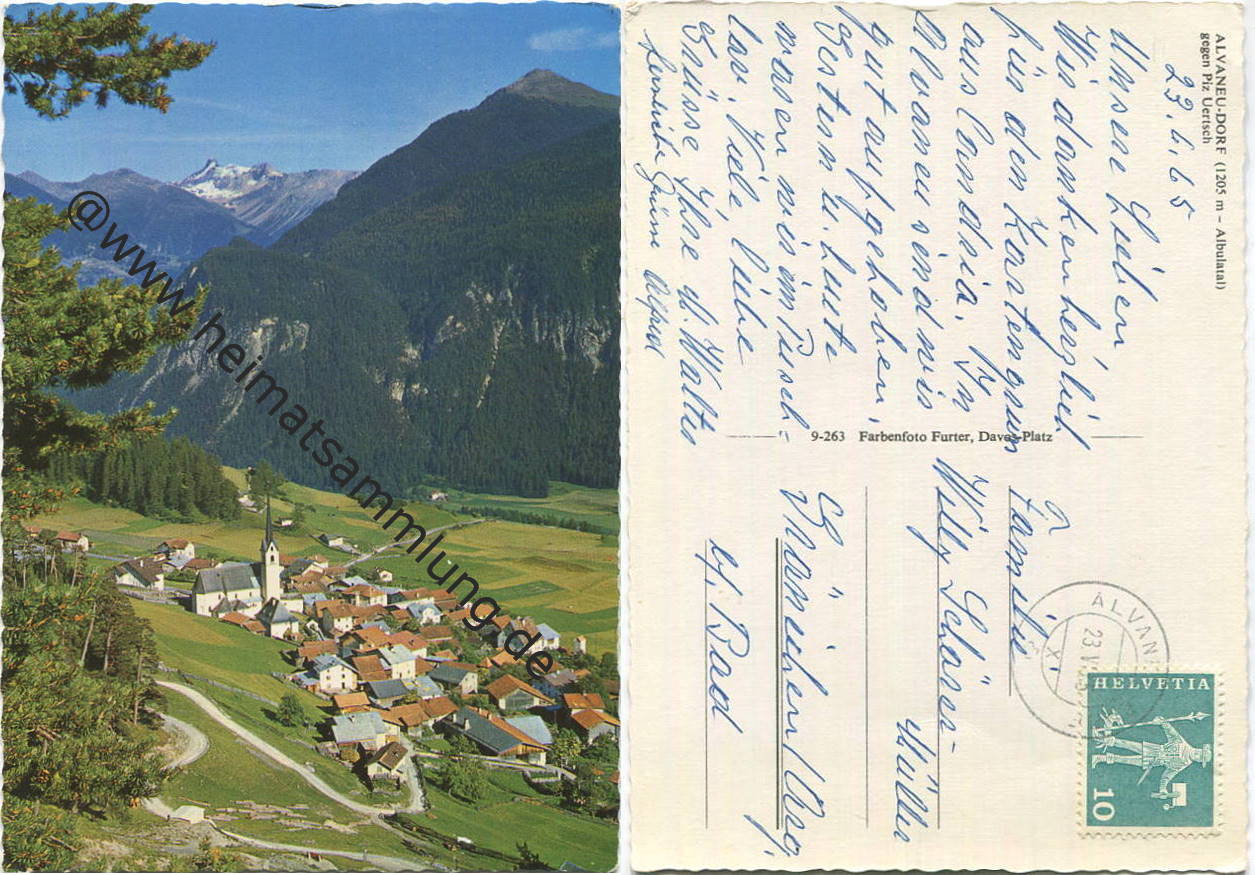 @www.heimatsammlung.de
ALVANEU-DORF (1205 m - Albulatal)
gegen Piz Uertsch
23.6.65
Unsere Lieben!
Wir danken herzlich
für den Kartengruss
aus Candria. In
Alvaneu sind wir
gut aufgehoben.
Gestern u. heute
waren wir im Pusch-
lav. Viele liebe
Grüsse Ihre d. Walter
herzliche Grüsse
9-263 Farbenfoto Furter, Davos-Platz
Familie
Willy Schärer-
Müller
Gränichen/Aarg.
b/. Bad
ALVANEU
23.VI
HELVETIA
10